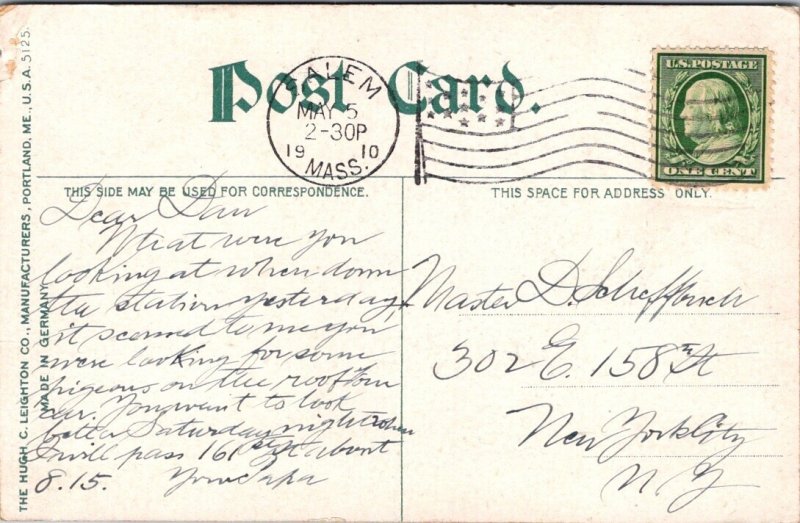 Post Card.
SALEM
MAY 5
2-30P
19 10
MASS.
U.S. POSTAGE
ONE CENT
THIS SIDE MAY BE USED FOR CORRESPONDENCE.
THIS SPACE FOR ADDRESS ONLY.
THE HUGH C. LEIGHTON CO., MANUFACTURERS, PORTLAND, ME., U.S.A. 5125.
MADE IN GERMANY
Dear Dan
What were you
looking at when down
the station yesterday,
it seemed to me you
were looking for some
pigeons on the roof from
car. You want to look
better Saturday night when
I will pass 161 St about
8.15. Your Papa
Master D.
302 E. 158th St
New York City
N Y